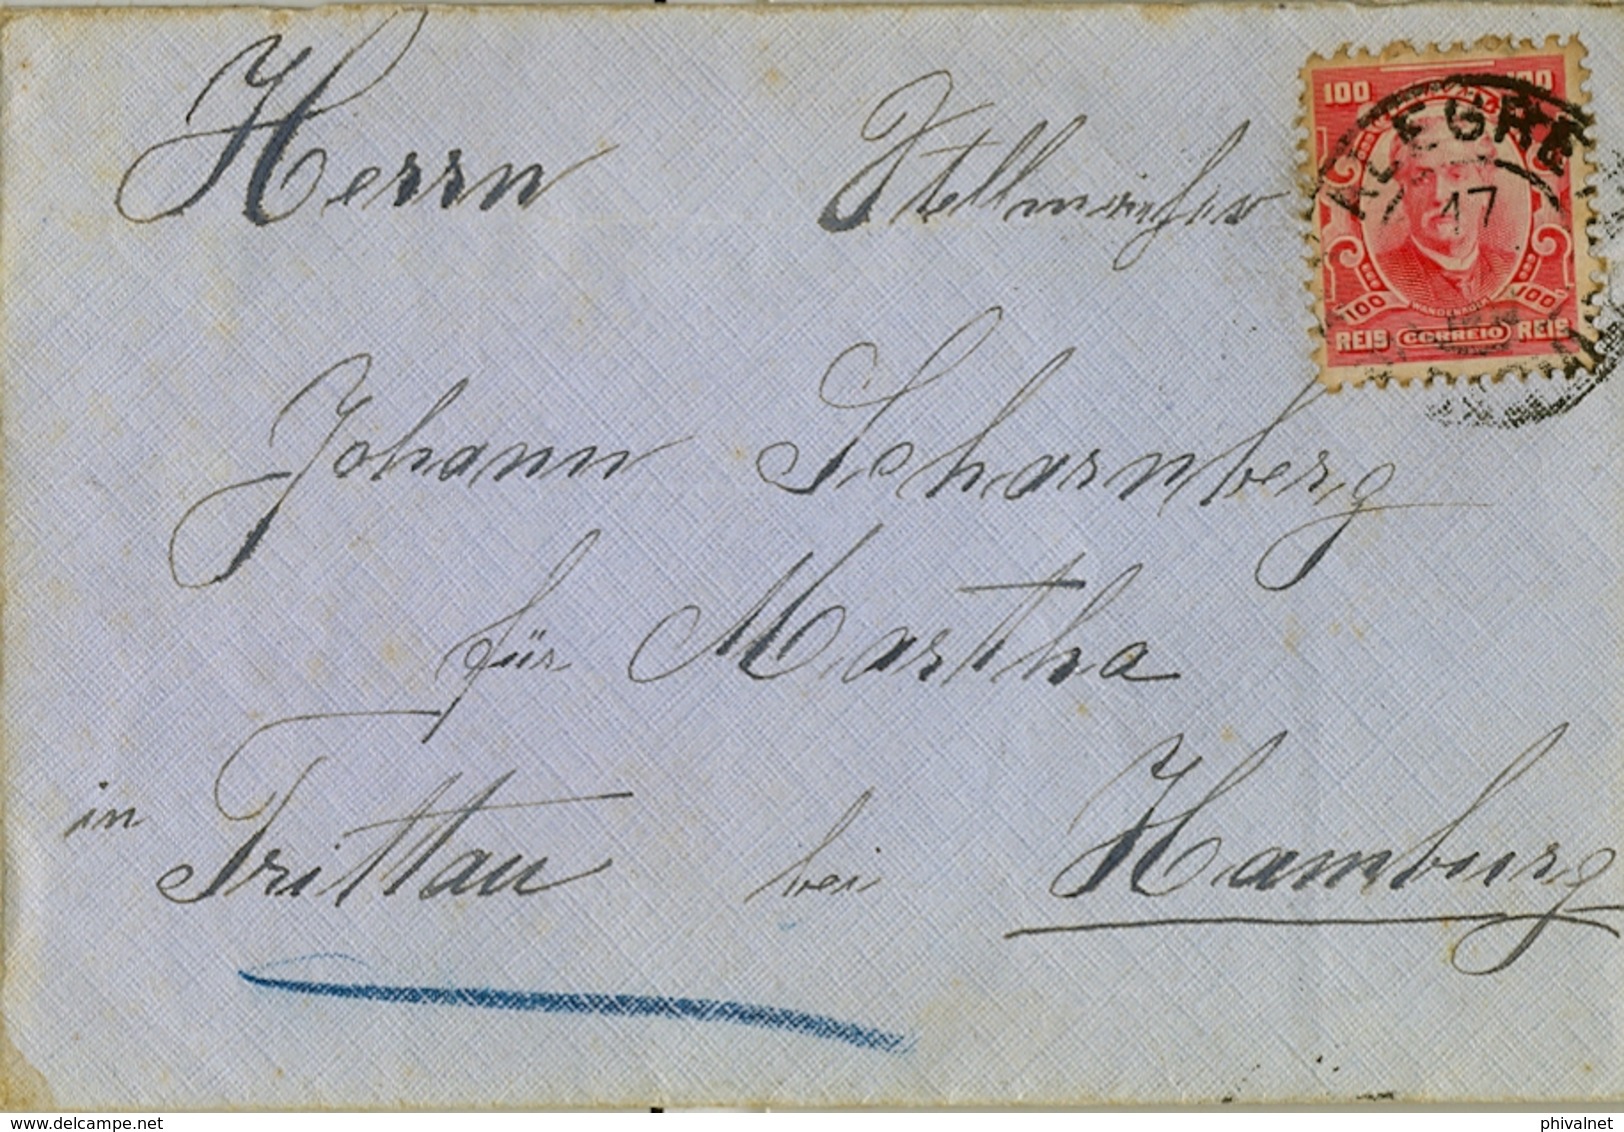 Herrn Stellmacher
Johann Scharnberg
für Martha
in Trittau bei Hamburg
100
ALEGRE
17
100 100
WANDENKOLK
REIS CORREIO REIS
phivalnet